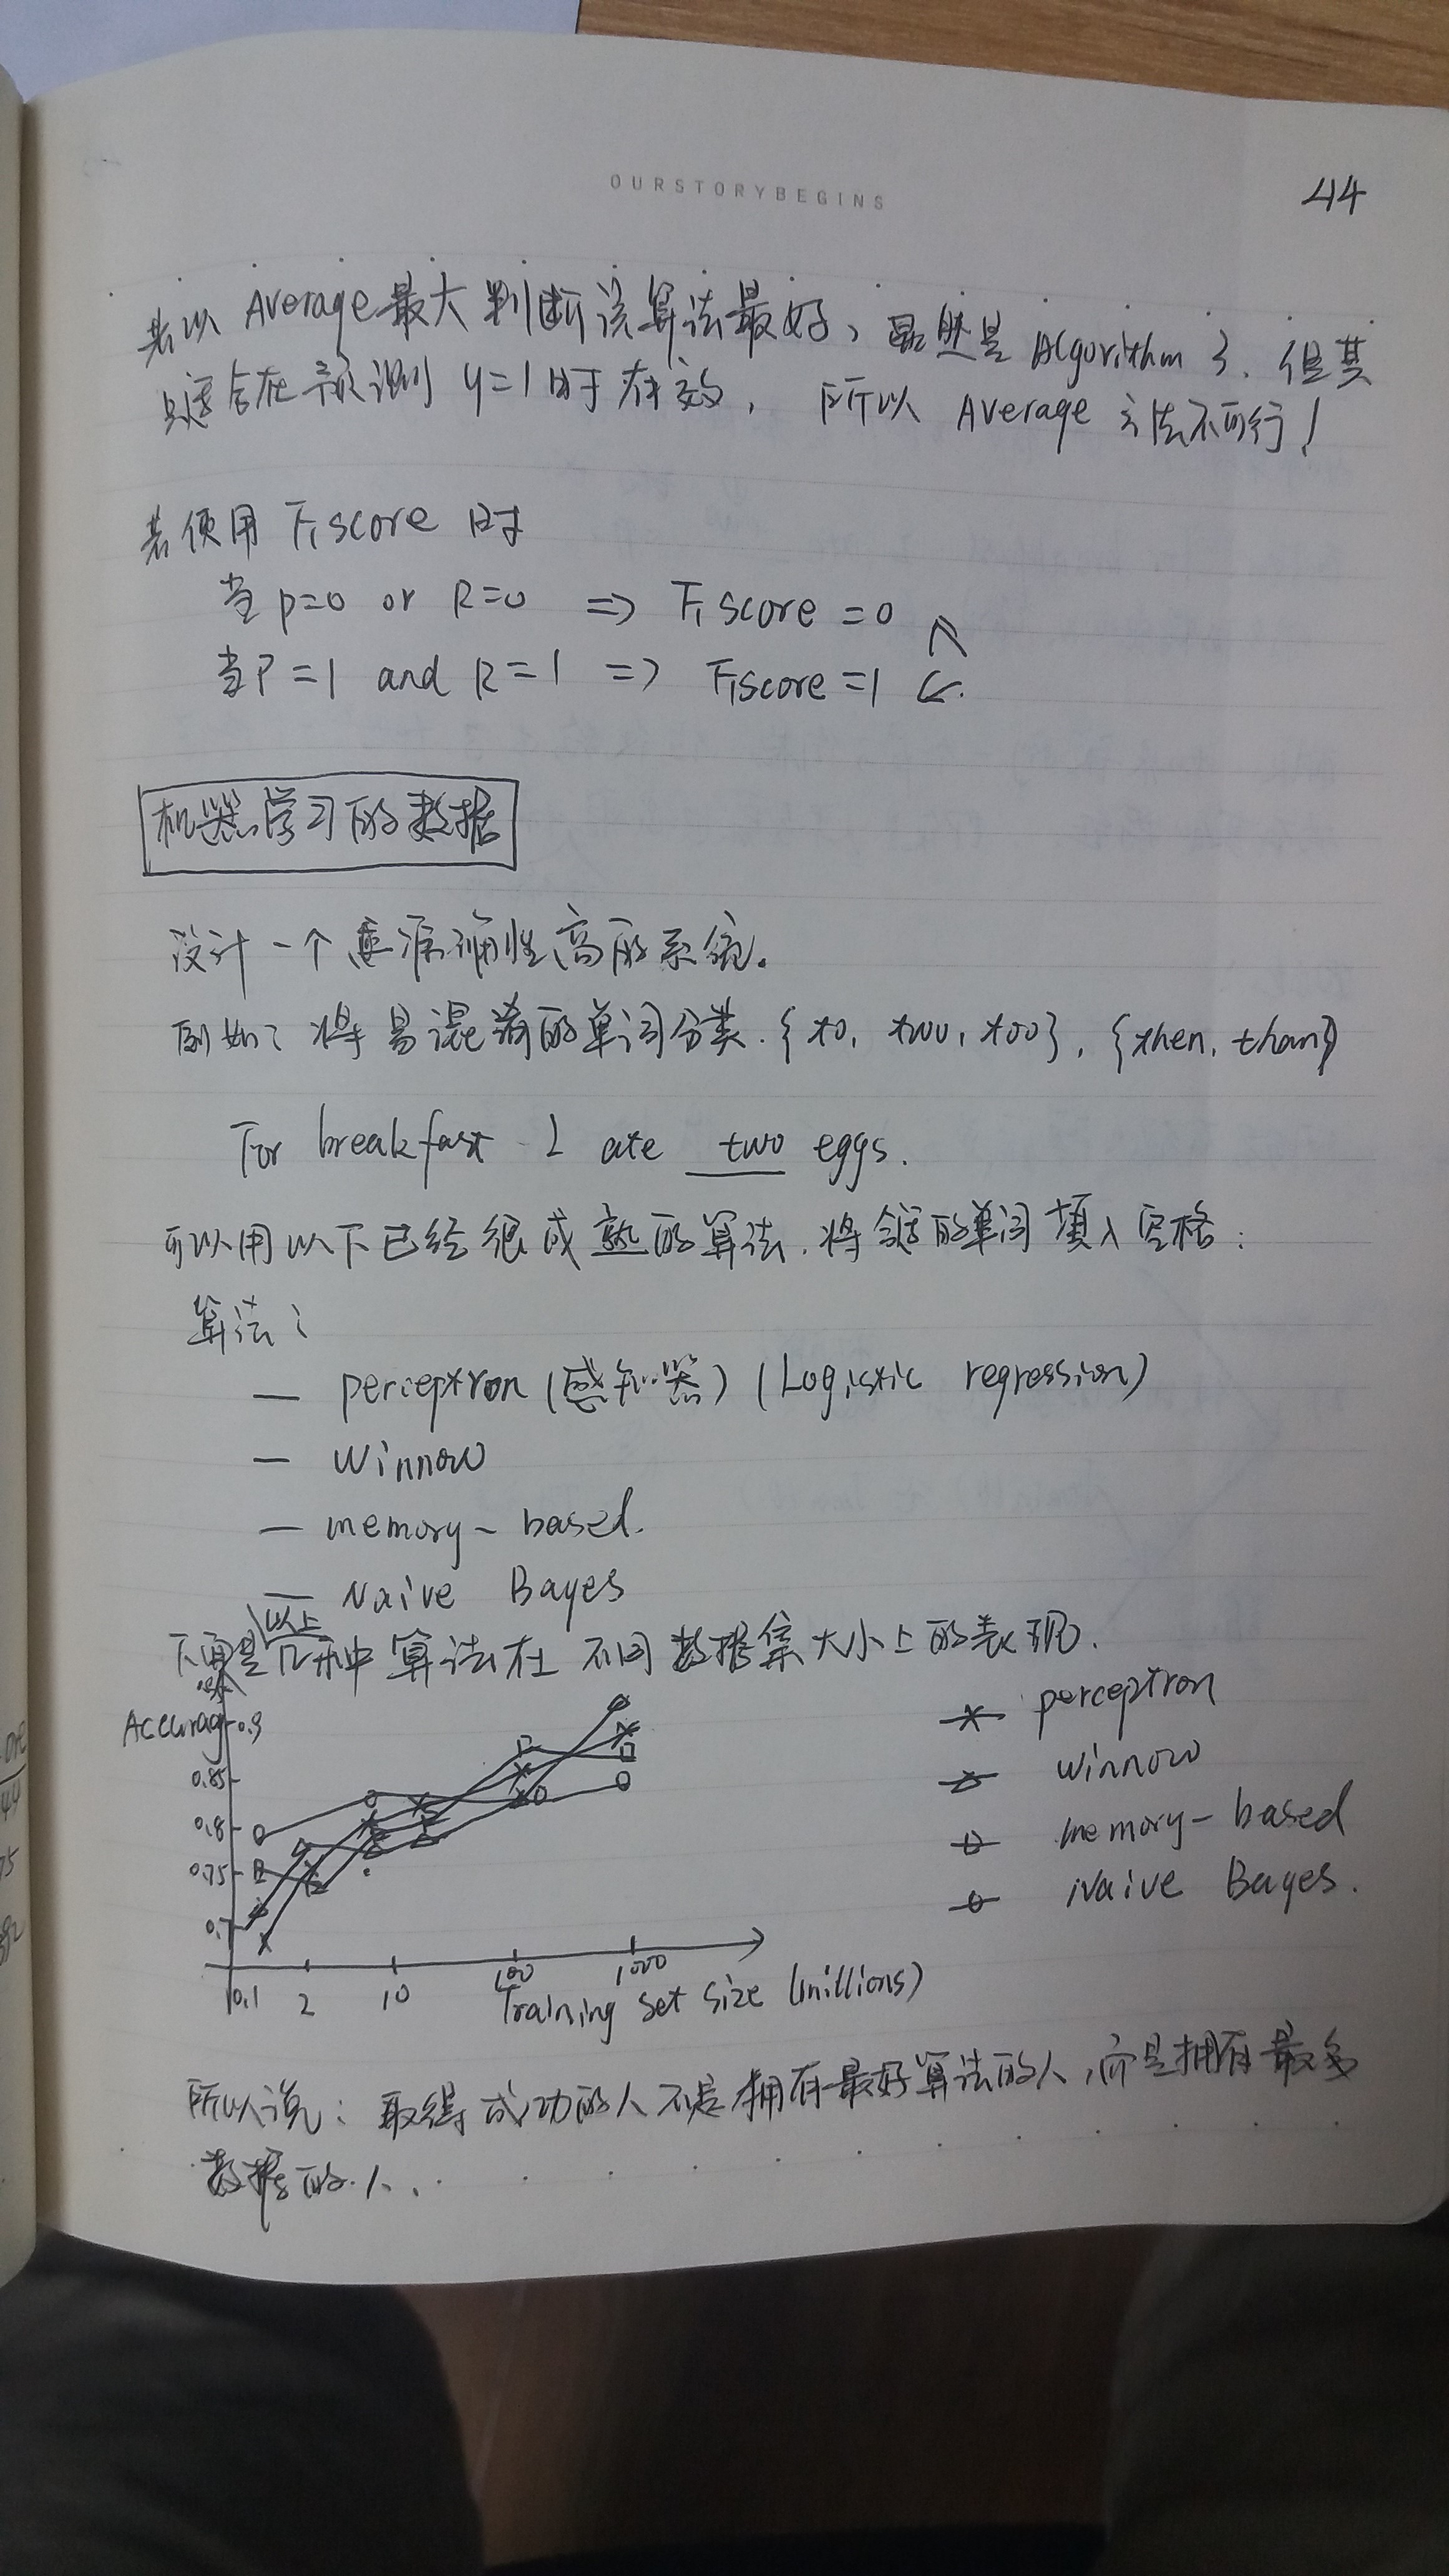 OURSTORYBEGINS
44
若以 Average最大判断该算法最好, 虽然是 Algorithm 3, 但其
只适合在预测 y=1时有效, 所以 Average 方法不可行!
若使用 F₁score 时
当 p=0 or R=0 => F₁score =0
当P=1 and R=1 => F₁score =1
机器学习的数据
设计一个准确性高的系统.
例如: 将易混淆的单词分类. {to, two, too}, {then, than}
For breakfast I ate two eggs.
可以用以下已经很成熟的算法, 将合适的单词填入空格:
算法:
— perceptron (感知器) (Logistic regression)
— Winnow
— memory-based.
— Naive Bayes
下面是以上几种算法在不同数据集大小上的表现.
Accuracy
0.9
0.85
0.8
0.75
0.7
perceptron
winnow
memory-based
Naive Bayes.
0.1 2 10 100 1000
Training set size (millions)
所以说: 取得成功的人不是拥有最好算法的人, 而是拥有最多
数据的人.